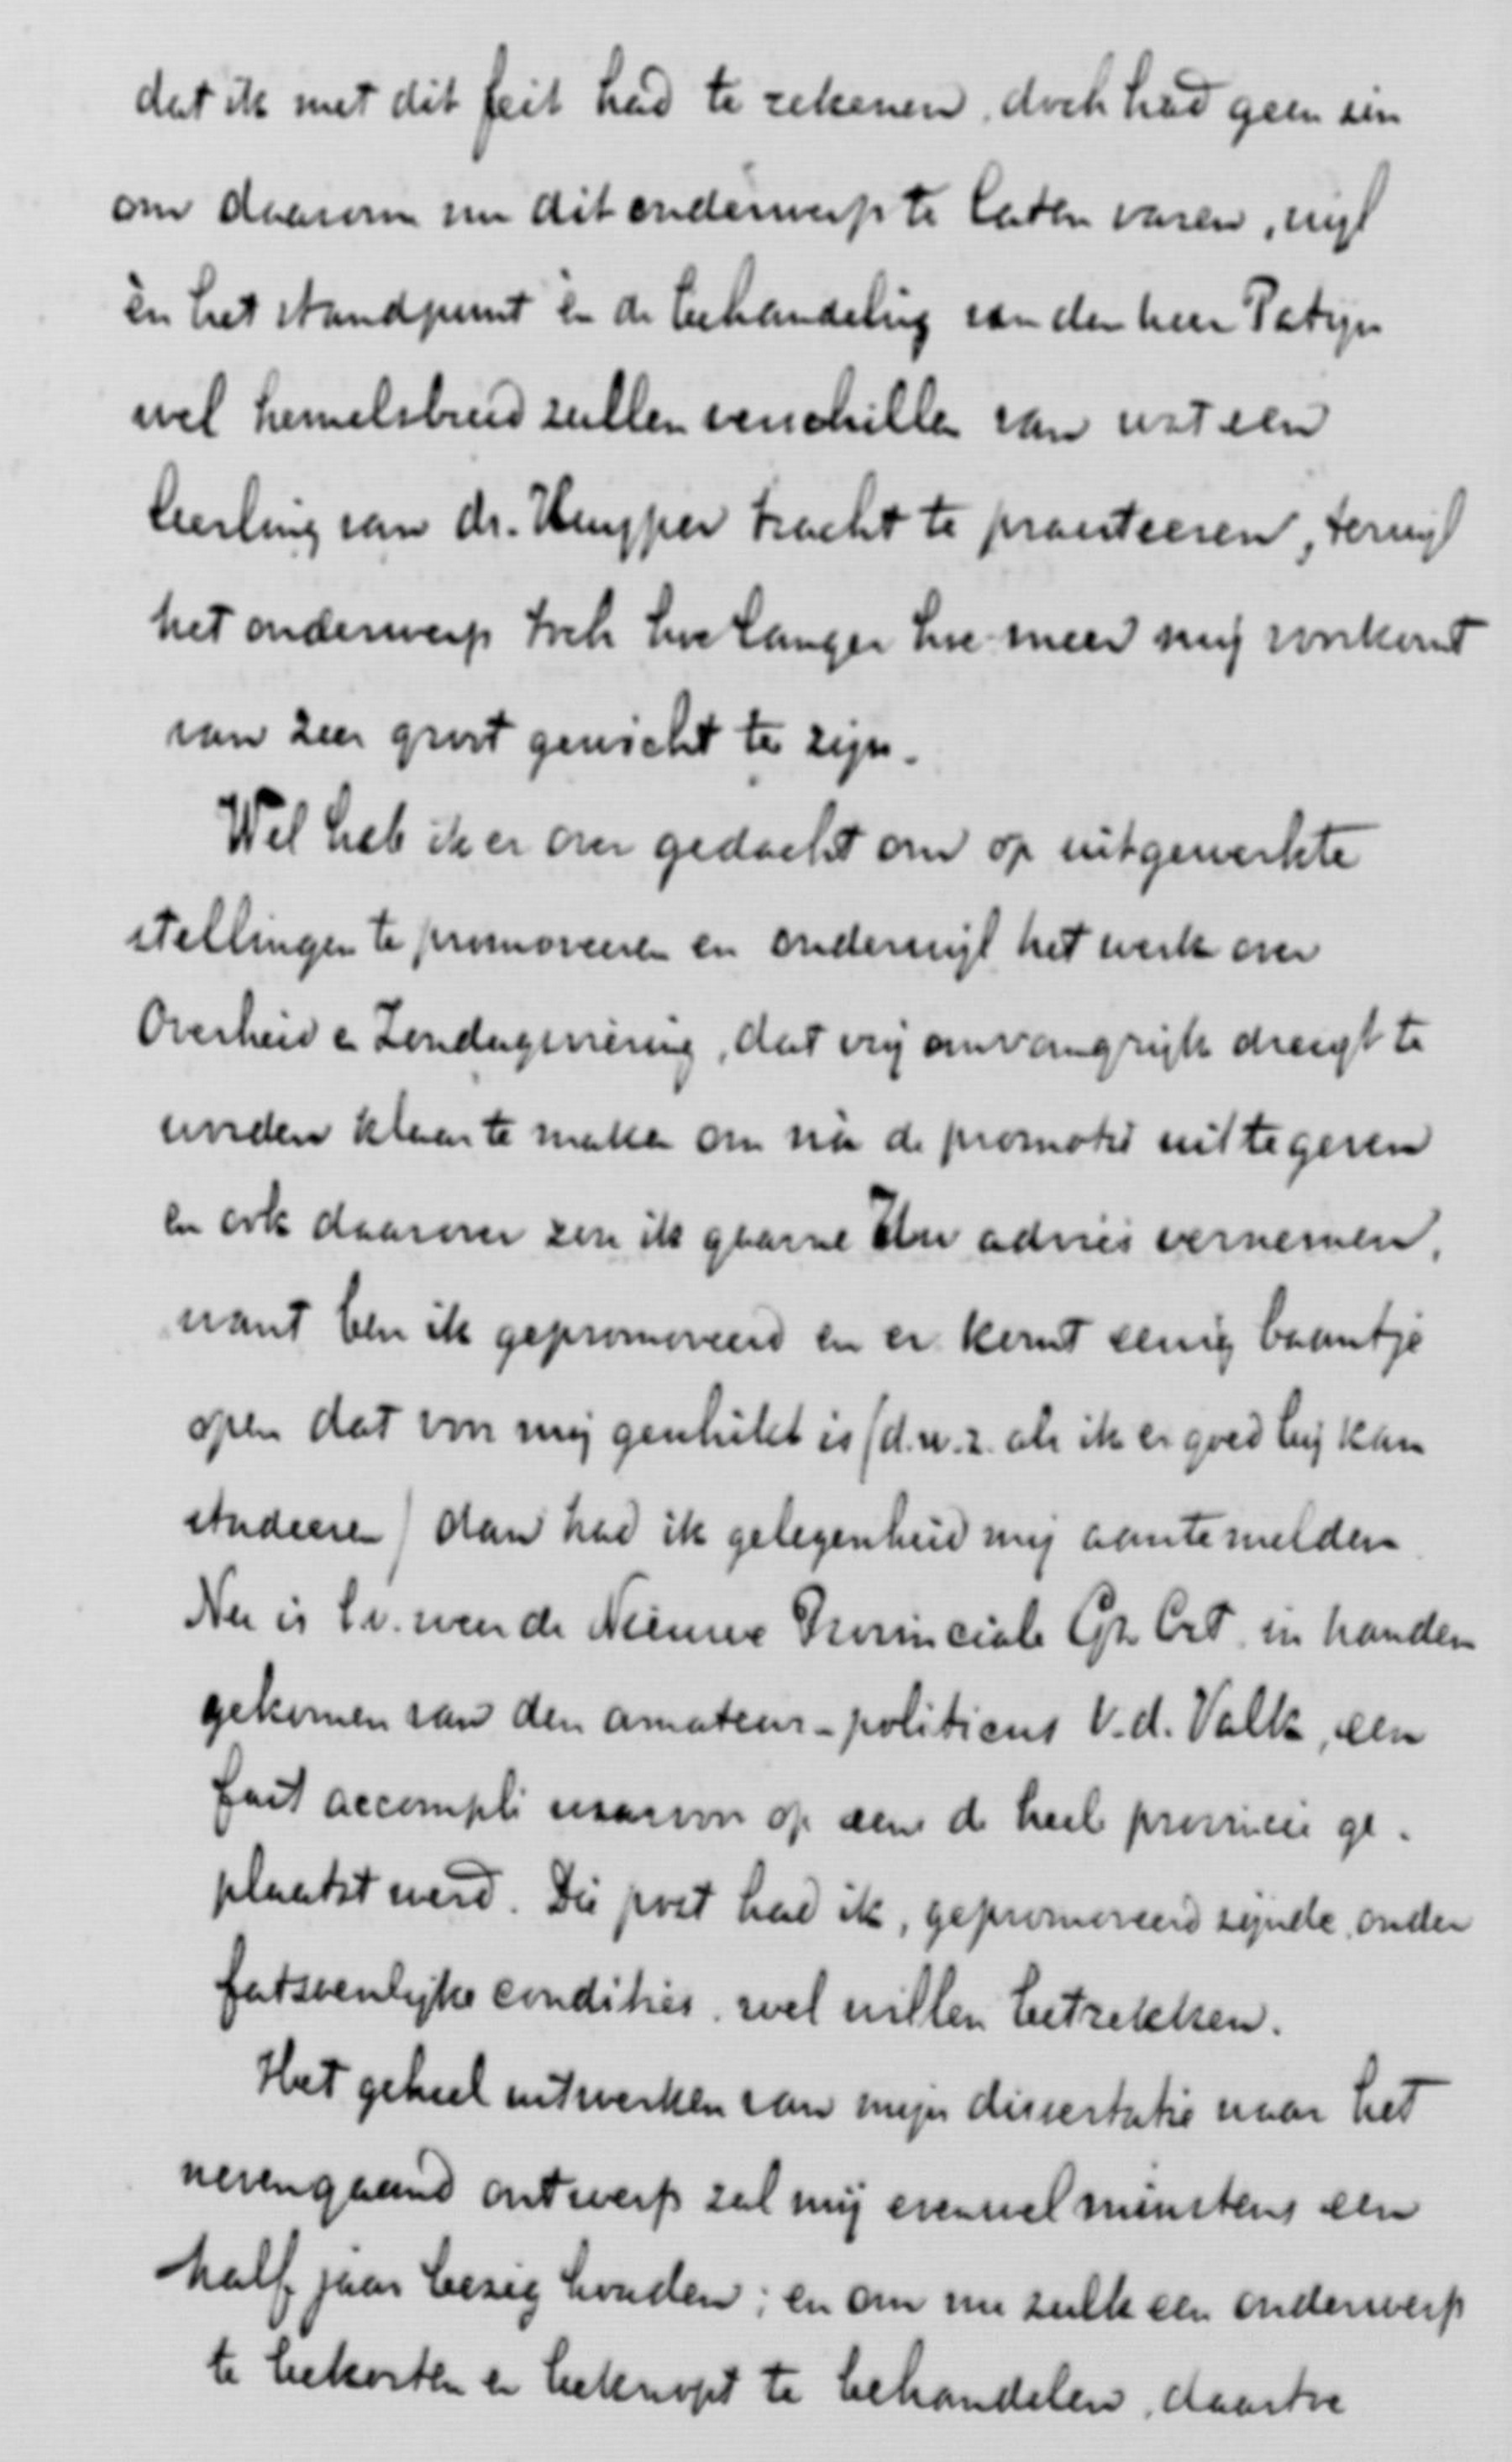 dat ik met dit feit had te rekenen, doch had geen zin
om daarom nu dit onderwerp te laten varen, wijl
èn het standpunt èn de behandeling van den heer Patijn
wel hemelsbreed zullen verschillen van wat een
leerling van dr. Kuyper tracht te praesteeren, terwijl
het onderwerp toch hoe langer hoe meer mij voorkomt
van zeer groot gewicht te zijn.
Wel heb ik er over gedacht om op uitgewerkte
stellingen te promoveeren en onderwijl het werk over
Overheid en Zondagsviering, dat vrij omvangrijk dreigt te
worden klaar te maken om nà de promotie uit te geven
en ook daarover zou ik gaarne Uw advies vernemen,
want ben ik gepromoveerd en er komt eenig baantje
open dat voor mij geschikt is (d.w.z. als ik er goed bij kan
studeeren) dan had ik gelegenheid mij aan te melden.
Nu is b.v. weer de Nieuwe Provinciale Gr. Crt. in handen
gekomen van den amateur-politicus V.d. Valk, een
fait accompli waarvoor op eens de heele provincie ge-
plaatst werd. Die post had ik, gepromoveerd zijnde, onder
fatsoenlijke condities, wel willen betrekken.
Het geheel uitwerken van mijn dissertatie naar het
nevengaand ontwerp zal mij evenwel minstens een
half jaar bezig houden; en om nu zulk een onderwerp
te bekorten en beknopt te behandelen, daartoe